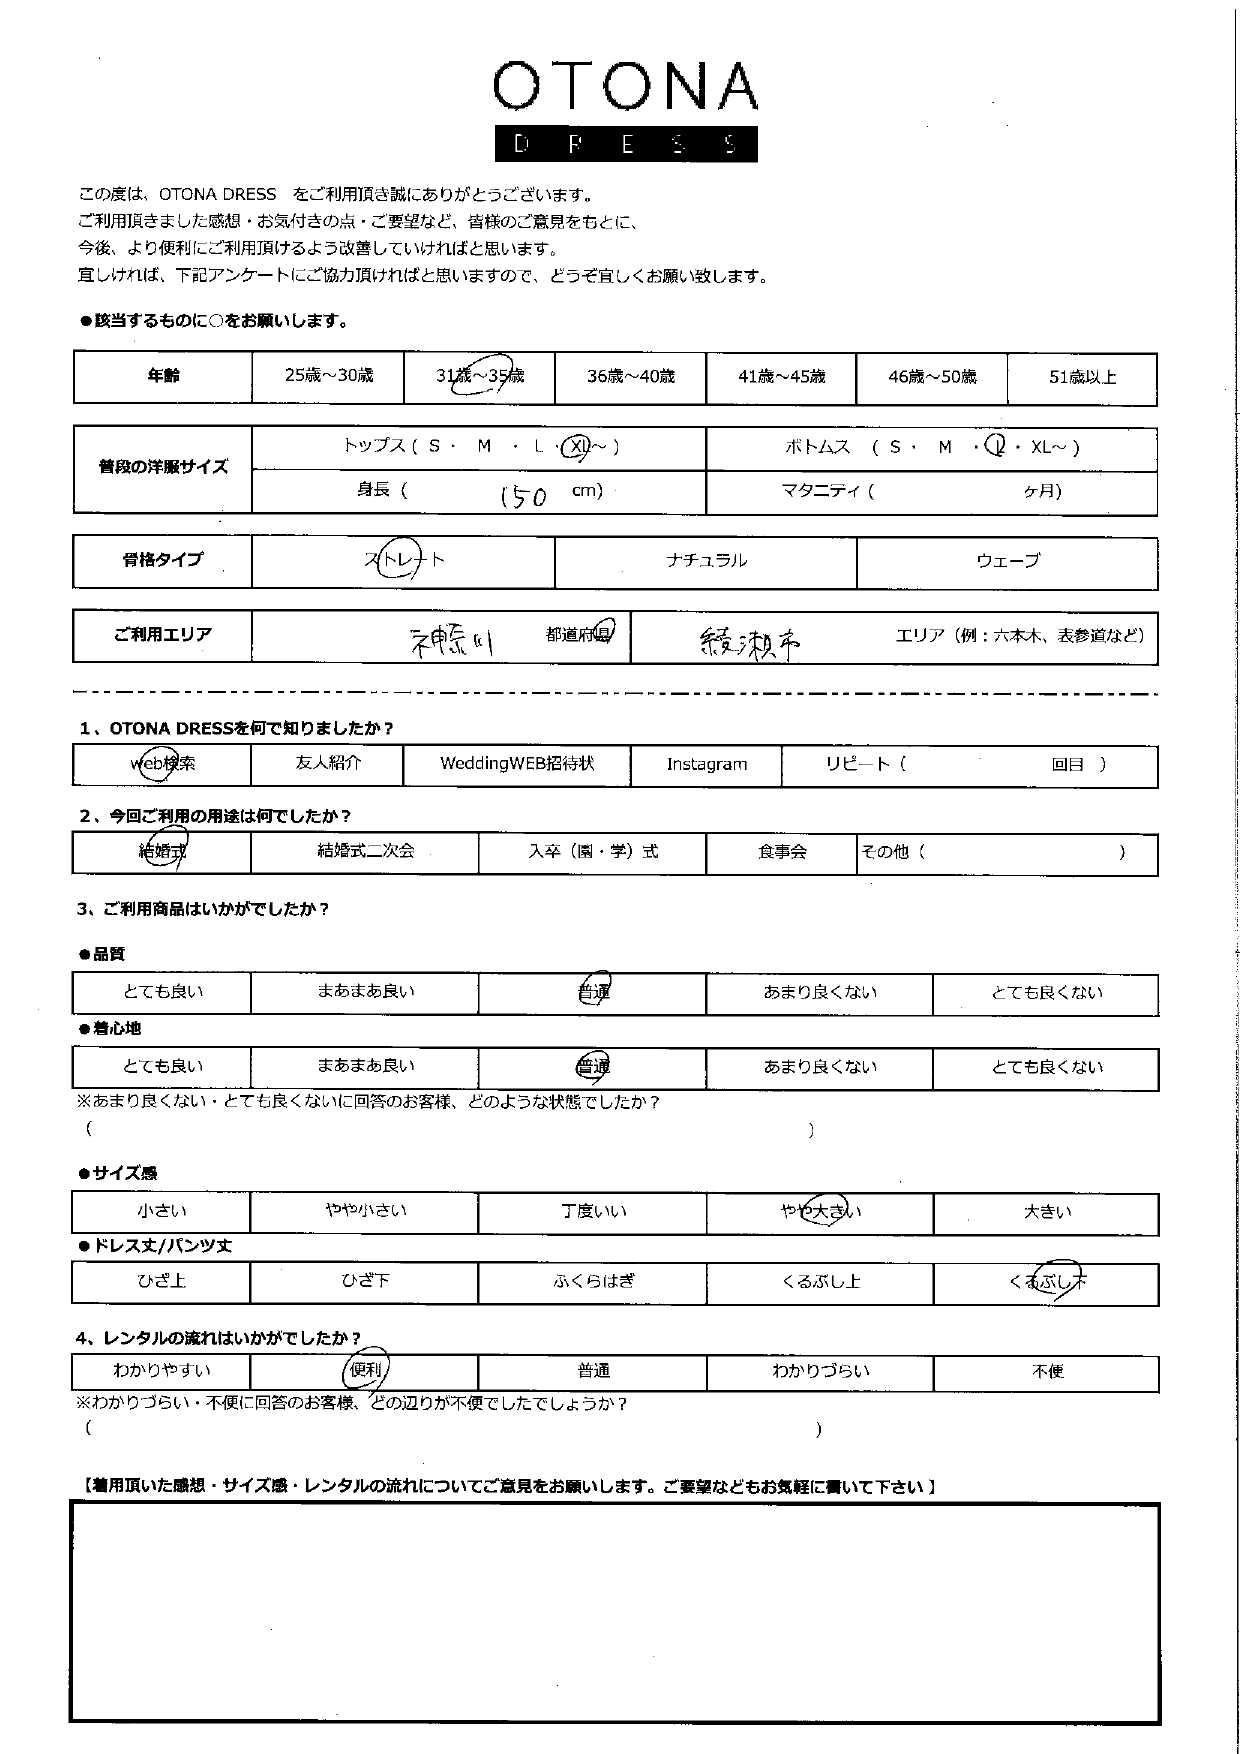 OTONA
DRESS
この度は、OTONA DRESS　をご利用頂き誠にありがとうございます。
ご利用頂きました感想・お気付きの点・ご要望など、皆様のご意見をもとに、
今後、より便利にご利用頂けるよう改善していければと思います。
宜しければ、下記アンケートにご協力頂ければと思いますので、どうぞ宜しくお願い致します。
●該当するものに○をお願いします。
年齢 25歳～30歳 31歳～35歳 36歳～40歳 41歳～45歳 46歳～50歳 51歳以上
普段の洋服サイズ トップス ( S ・ M ・ L ・ XL～ ) ボトムス ( S ・ M ・ L ・ XL～ )
身長 ( 150 cm) マタニティ ( ヶ月)
骨格タイプ ストレート ナチュラル ウェーブ
ご利用エリア 神奈川 都道府県 綾瀬市 エリア（例：六本木、表参道など）
1、OTONA DRESSを何で知りましたか？
web検索 友人紹介 WeddingWEB招待状 Instagram リピート（ 回目 ）
2、今回ご利用の用途は何でしたか？
結婚式 結婚式二次会 入卒（園・学）式 食事会 その他（ ）
3、ご利用商品はいかがでしたか？
●品質
とても良い まあまあ良い 普通 あまり良くない とても良くない
●着心地
とても良い まあまあ良い 普通 あまり良くない とても良くない
※あまり良くない・とても良くないに回答のお客様、どのような状態でしたか？
（ ）
●サイズ感
小さい やや小さい 丁度いい やや大きい 大きい
●ドレス丈/パンツ丈
ひざ上 ひざ下 ふくらはぎ くるぶし上 くるぶし下
4、レンタルの流れはいかがでしたか？
わかりやすい 便利 普通 わかりづらい 不便
※わかりづらい・不便に回答のお客様、どの辺りが不便でしたでしょうか？
（ ）
【着用頂いた感想・サイズ感・レンタルの流れについてご意見をお願いします。ご要望などもお気軽に書いて下さい 】